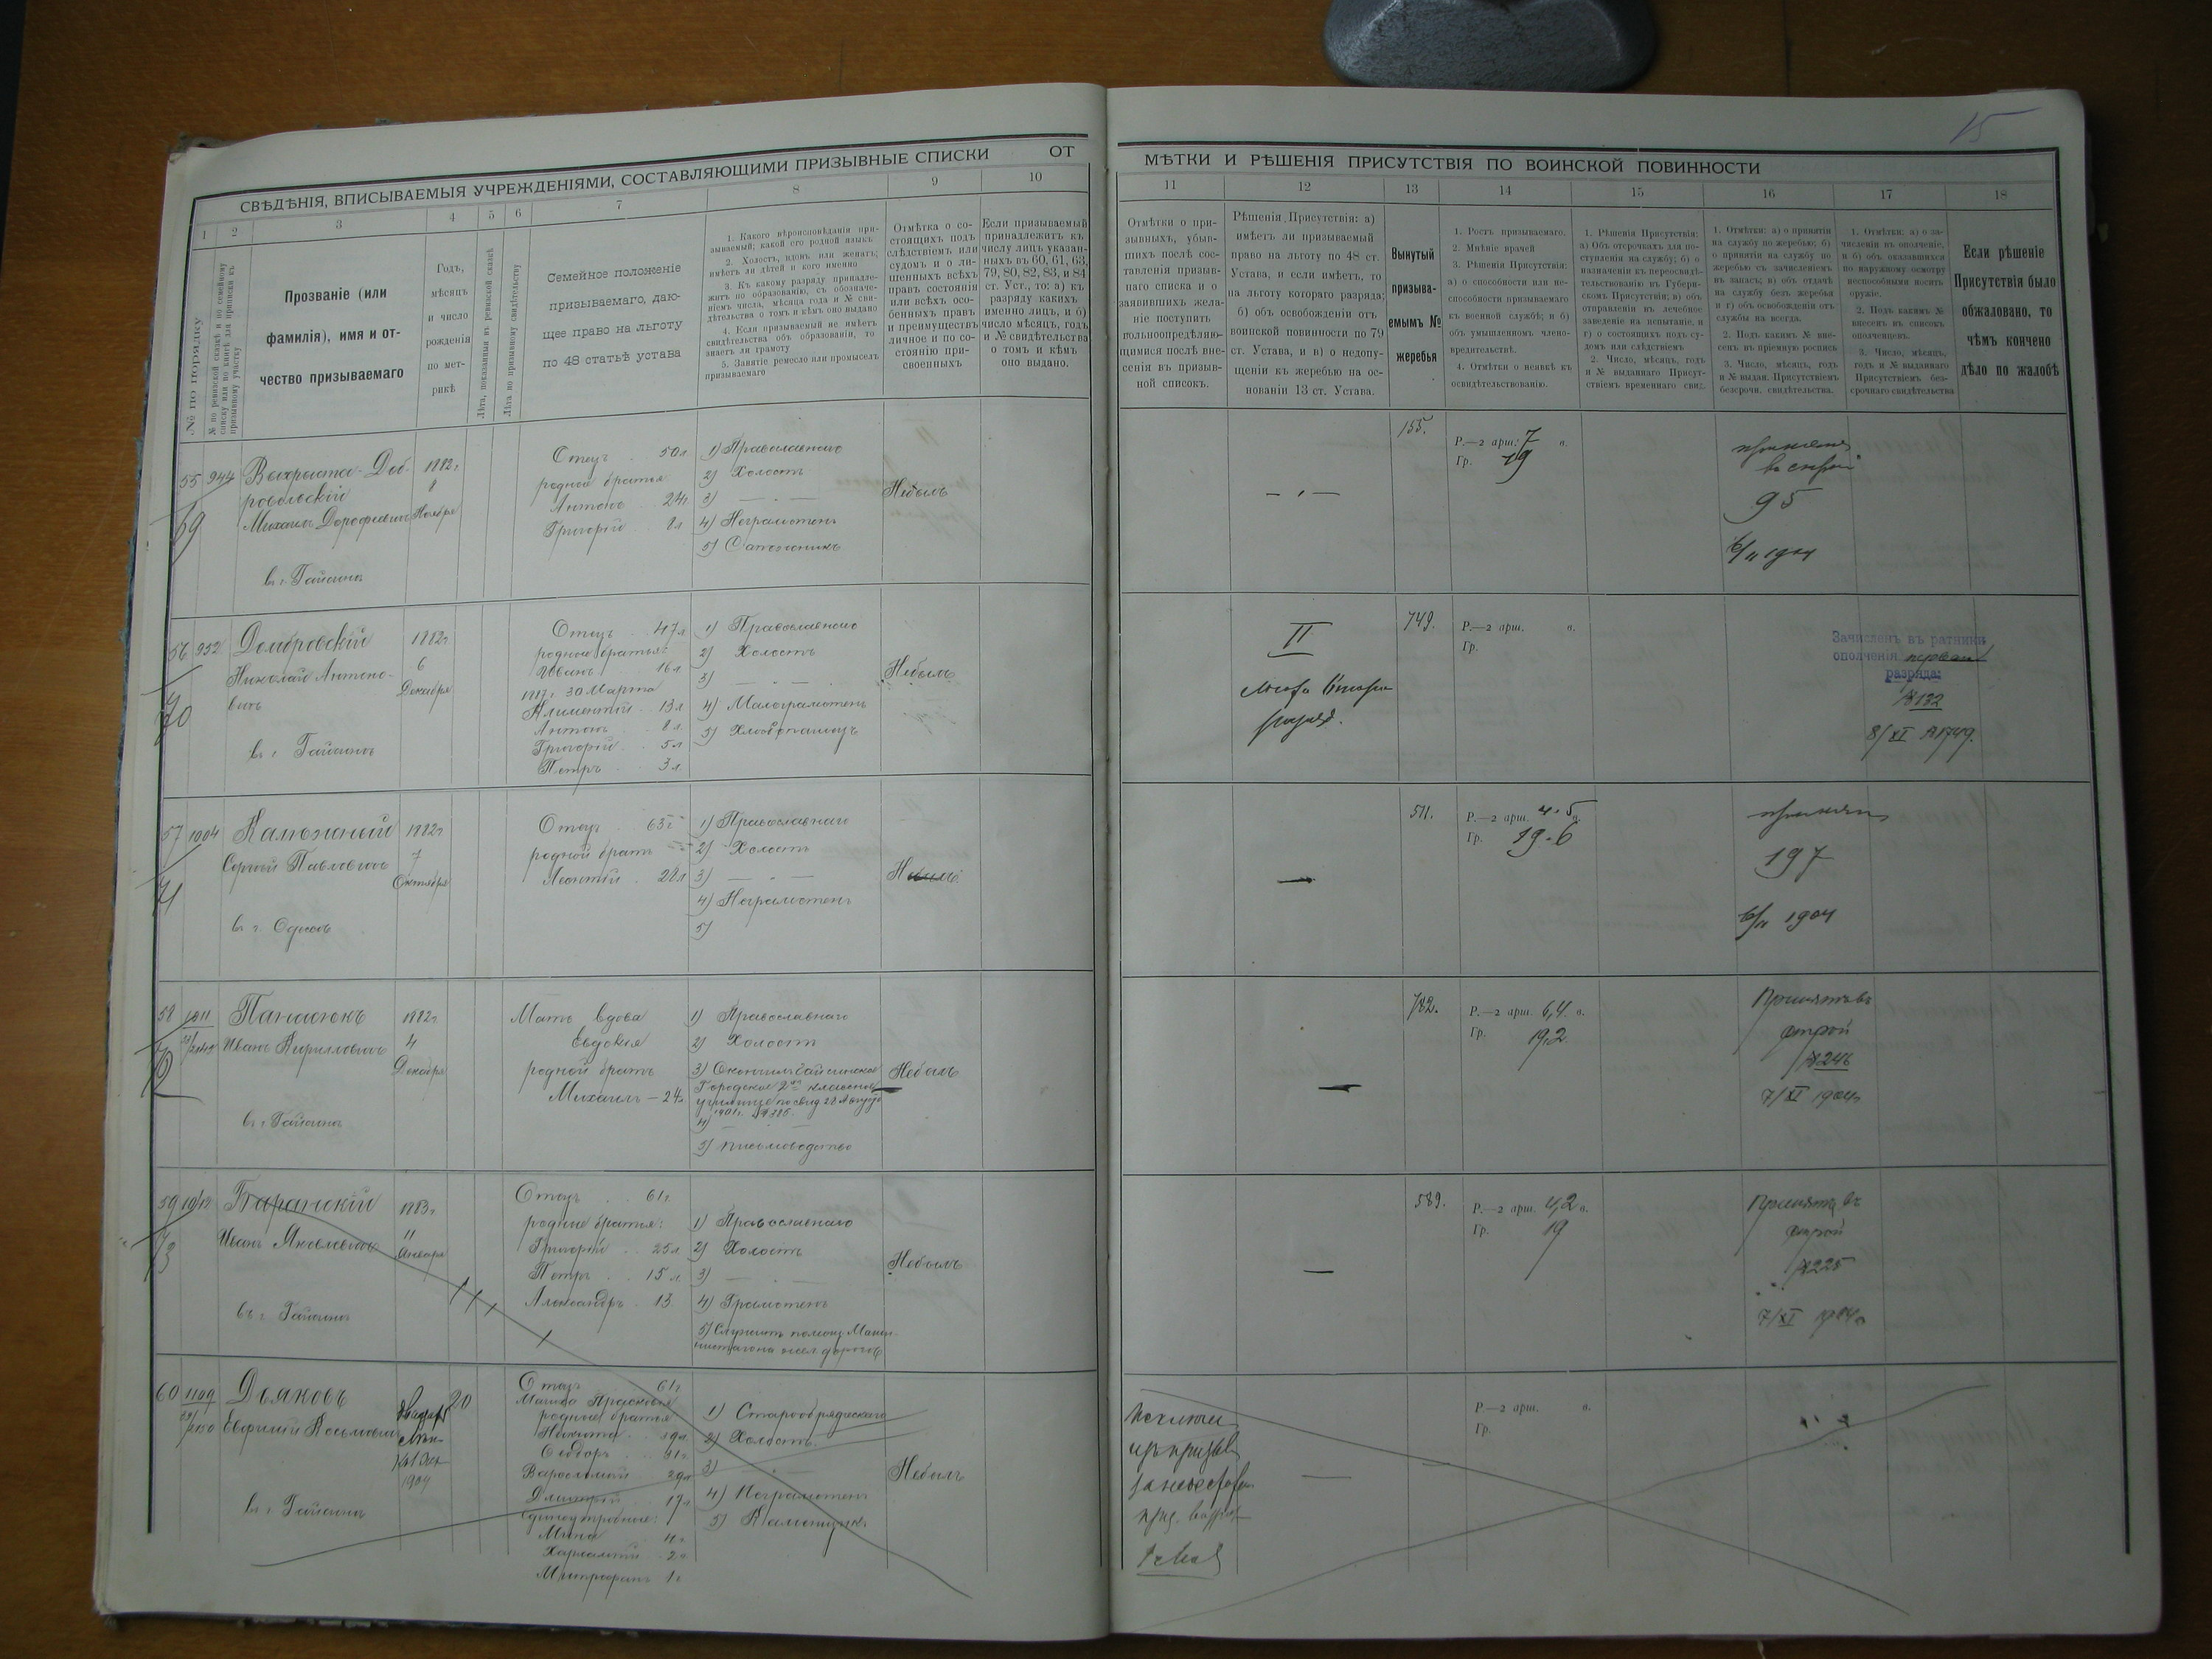 15
СВѢДѢНІЯ, ВПИСЫВАЕМЫЯ УЧРЕЖДЕНІЯМИ, СОСТАВЛЯЮЩИМИ ПРИЗЫВНЫЕ СПИСКИ ОТ
МѢТКИ И РѢШЕНІЯ ПРИСУТСТВІЯ ПО ВОИНСКОЙ ПОВИННОСТИ
1 2 3 4 5 6 7 8 9 10
11 12 13 14 15 16 17 18
№ по порядку
№ по ревизской сказкѣ и по семейному
списку или по книгѣ для приписки къ
призывному участку
Прозваніе (или
фамилія), имя и от-
чество призываемаго
Годъ,
мѣсяцъ
и число
рожденія
по мет-
рикѣ
Лѣта, показанныя въ ревизской сказкѣ
Лѣта по призывному свидѣтельству
Семейное положеніе
призываемаго, даю-
щее право на льготу
по 48 статьѣ устава
1. Какого вѣроисповѣданія при-
зываемый; какой его родной языкъ
2. Холостъ, вдовъ или женатъ;
имѣетъ ли дѣтей и кого именно
3. Къ какому разряду принадле-
житъ по образованію, съ обозначе-
ніемъ числа, мѣсяца года и № сви-
дѣтельства о томъ и кѣмъ оно выдано
4. Если призываемый не имѣетъ
свидѣтельства объ образованіи, то
знаетъ ли грамоту
5. Занятіе ремесло или промыселъ
призываемаго
Отмѣтка о со-
стоящихъ подъ
слѣдствіемъ или
судомъ и о ли-
шенныхъ всѣхъ
правъ состоянія
или всѣхъ осо-
бенныхъ правъ
и преимуществъ
личное и по со-
стоянію при-
своенныхъ
Если призываемый
принадлежитъ къ
числу лицъ указан-
ныхъ въ 60, 61, 63,
79, 80, 82, 83, и 84
ст. Уст., то: а) къ
разряду какихъ
именно лицъ, и б)
число мѣсяцъ, годъ
и № свидѣтельства
о томъ и кѣмъ
оно выдано.
Отмѣтки о при-
зывныхъ, убыв-
шихъ послѣ сос-
тавленія призыв-
наго списка и о
заявившихъ жела-
ніе поступить
вольноопредѣляю-
щимися послѣ вне-
сенія въ призыв-
ной списокъ.
Рѣшенія Присутствія: а)
имѣетъ ли призываемый
право на льготу по 48 ст.
Устава, и если имѣетъ, то
на льготу котораго разряда;
б) объ освобожденіи отъ
воинской повинности по 79
ст. Устава, и в) о недопу-
щеніи къ жеребью на ос-
нованіи 13 ст. Устава.
Вынутый
призыва-
емымъ №
жеребья
1. Ростъ призываемаго.
2. Мнѣніе врачей
3. Рѣшенія Присутствія:
а) о способности или не-
способности призываемаго
къ военной службѣ; и б)
объ умышленномъ члено-
вредительствѣ.
4. Отмѣтки о неявкѣ къ
освидѣтельствованію.
1. Рѣшенія Присутствія:
а) Объ отсрочкахъ для по-
ступленія на службу; б) о
назначеніи къ переосвидѣ-
тельствованію въ Губерн-
скомъ Присутствіи; в) объ
отправленіи въ лечебное
заведеніе на испытаніе, и
г) о состоящихъ подъ су-
домъ или слѣдствіемъ
2. Число, мѣсяцъ, годъ
и № выданнаго Присут-
ствіемъ временнаго свид.
1. Отмѣтки: а) о принятіи
на службу по жеребью; б)
о принятіи на службу по
жеребью съ зачисленіемъ
въ запасъ; в) объ отдачѣ
на службу безъ жеребья
и г) объ освобожденіи отъ
службы на всегда.
2. Подъ какимъ № вне-
сенъ въ пріемную роспись
3. Число, мѣсяцъ, годъ
и № выдан. Присутствіемъ
безсрочн. свидѣтельства.
1. Отмѣтки: а) о за-
численіи въ ополченіе,
и б) объ оказавшихся
по наружному осмотру
неспособными носить
оружіе.
2. Подъ какимъ №
внесенъ въ списокъ
ополченцевъ.
3. Число, мѣсяцъ,
годъ и № выданнаго
Присутствіемъ без-
срочнаго свидѣтельства
Если рѣшеніе
Присутствія было
обжаловано, то
чѣмъ кончено
дѣло по жалобѣ
55 944
69
Доб-
ровольскій
Михаилъ Дорофеевичъ
в г. Гайсинѣ
1882 г.
8
Ноября
Отецъ 50 л
родные братья
Антонъ 24 г
Григорій 8 л
1) Православнаго
2) Холостъ
3) — " —
4) Неграмотенъ
5) Сапожникъ
Небылъ
— " —
155.
Р.—2 арш. 7 в.
Гр. 19
95
1904
56 952
70
Домбровскій
Николай Антоно-
вичъ
в г. Гайсинѣ
1882 г
6
Декабря
Отецъ 47 л
родные братья:
Иванъ 16 л
1887 г. 30 Марта
Климентій 13 л
Антонъ 8 л
Григорій 5 л
Петръ 3 л
1) Православнаго
2) Холостъ
3) — " —
4) Малограмотенъ
5) Хлѣбопашецъ
Небылъ
II
749.
Р.—2 арш. в.
Гр.
Зачисленъ въ ратники
ополченія
разряда:
№ 132
8/XI № 1749.
57 1004
71
Сергѣй Павловичъ
в г. Одессѣ
1882 г
7
Октября
Отецъ 63 г
родной братъ
Леонтій 28 л
1) Православнаго
2) Холостъ
3) — " —
4) Неграмотенъ
5)
511.
Р.—2 арш. 4.5 в.
Гр. 19-6
197
1904
58 1011
72
Иванъ Кирилловичъ
в г. Гайсинѣ
1882 г.
4
Декабря
Мать вдова
Евдокія
родной братъ
Михаилъ — 24 г
1) Православнаго
2) Холостъ
3) Окончилъ Гайсинское
Городское 2хъ классное
училище по свид 28 Августа
1901 г. № 386
4) —
5) письмоводство
Небылъ
782.
Р.—2 арш. 6,4. в.
Гр. 19,2
Принятъ въ
строй
№ 246
7/XI 1904 г
59 1012
73
Баранскій
Иванъ Яковлевичъ
въ г. Гайсинѣ
1883 г
11
Января
Отецъ 61 г.
родные братья:
Григорій 25 л
Петръ 15 л.
Александръ 13
1) Православнаго
2) Холостъ
3) — " —
4) Грамотенъ
5) Служитъ помощ. Маши-
ниста на жел. дорогѣ
Небылъ
589.
Р.—2 арш. 4,2 в.
Гр. 19
Принятъ въ
строй
№ 225
7/XI 1904 г
60 1109
Дьяковъ
Евфимій Косьмовичъ
в г. Гайсинѣ
20
1904
Отецъ 61 г.
родные братья
Никита 39 л
Феодоръ 31 г
Варфоломей 29 л
Дмитрій 17 л
единоутробные:
Мина 4 г.
Харлампій 2 г.
Митрофанъ 1 г
1) Старообрядческаго
2) Холостъ
3) — " —
4) Неграмотенъ
5) Каменщикъ
Небылъ
Р.—2 арш. в.
Гр.